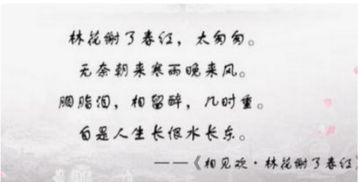 林花谢了春红，太匆匆。
无奈朝来寒雨晚来风。
胭脂泪，相留醉，几时重。
自是人生长恨水长东。
——《相见欢·林花谢了春红